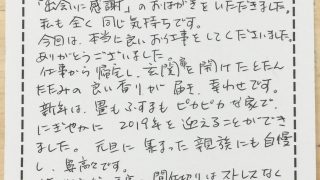 「出会いに感謝」のおはがきをいただきました。
私も全く同じ気持ちです。
今回は、本当に良いお仕事をしてくださいました。
ありがとうございました。
仕事から帰宅し、玄関を開けたとたん
たたみの良い香りが届き、幸わせです。
新年は、畳もふすまもピカピカな家で、
にぎやかに2019年を迎えることができ
ました。元旦に集まった親族にも自慢
し、鼻高々です。
間仕切りはストレスなく